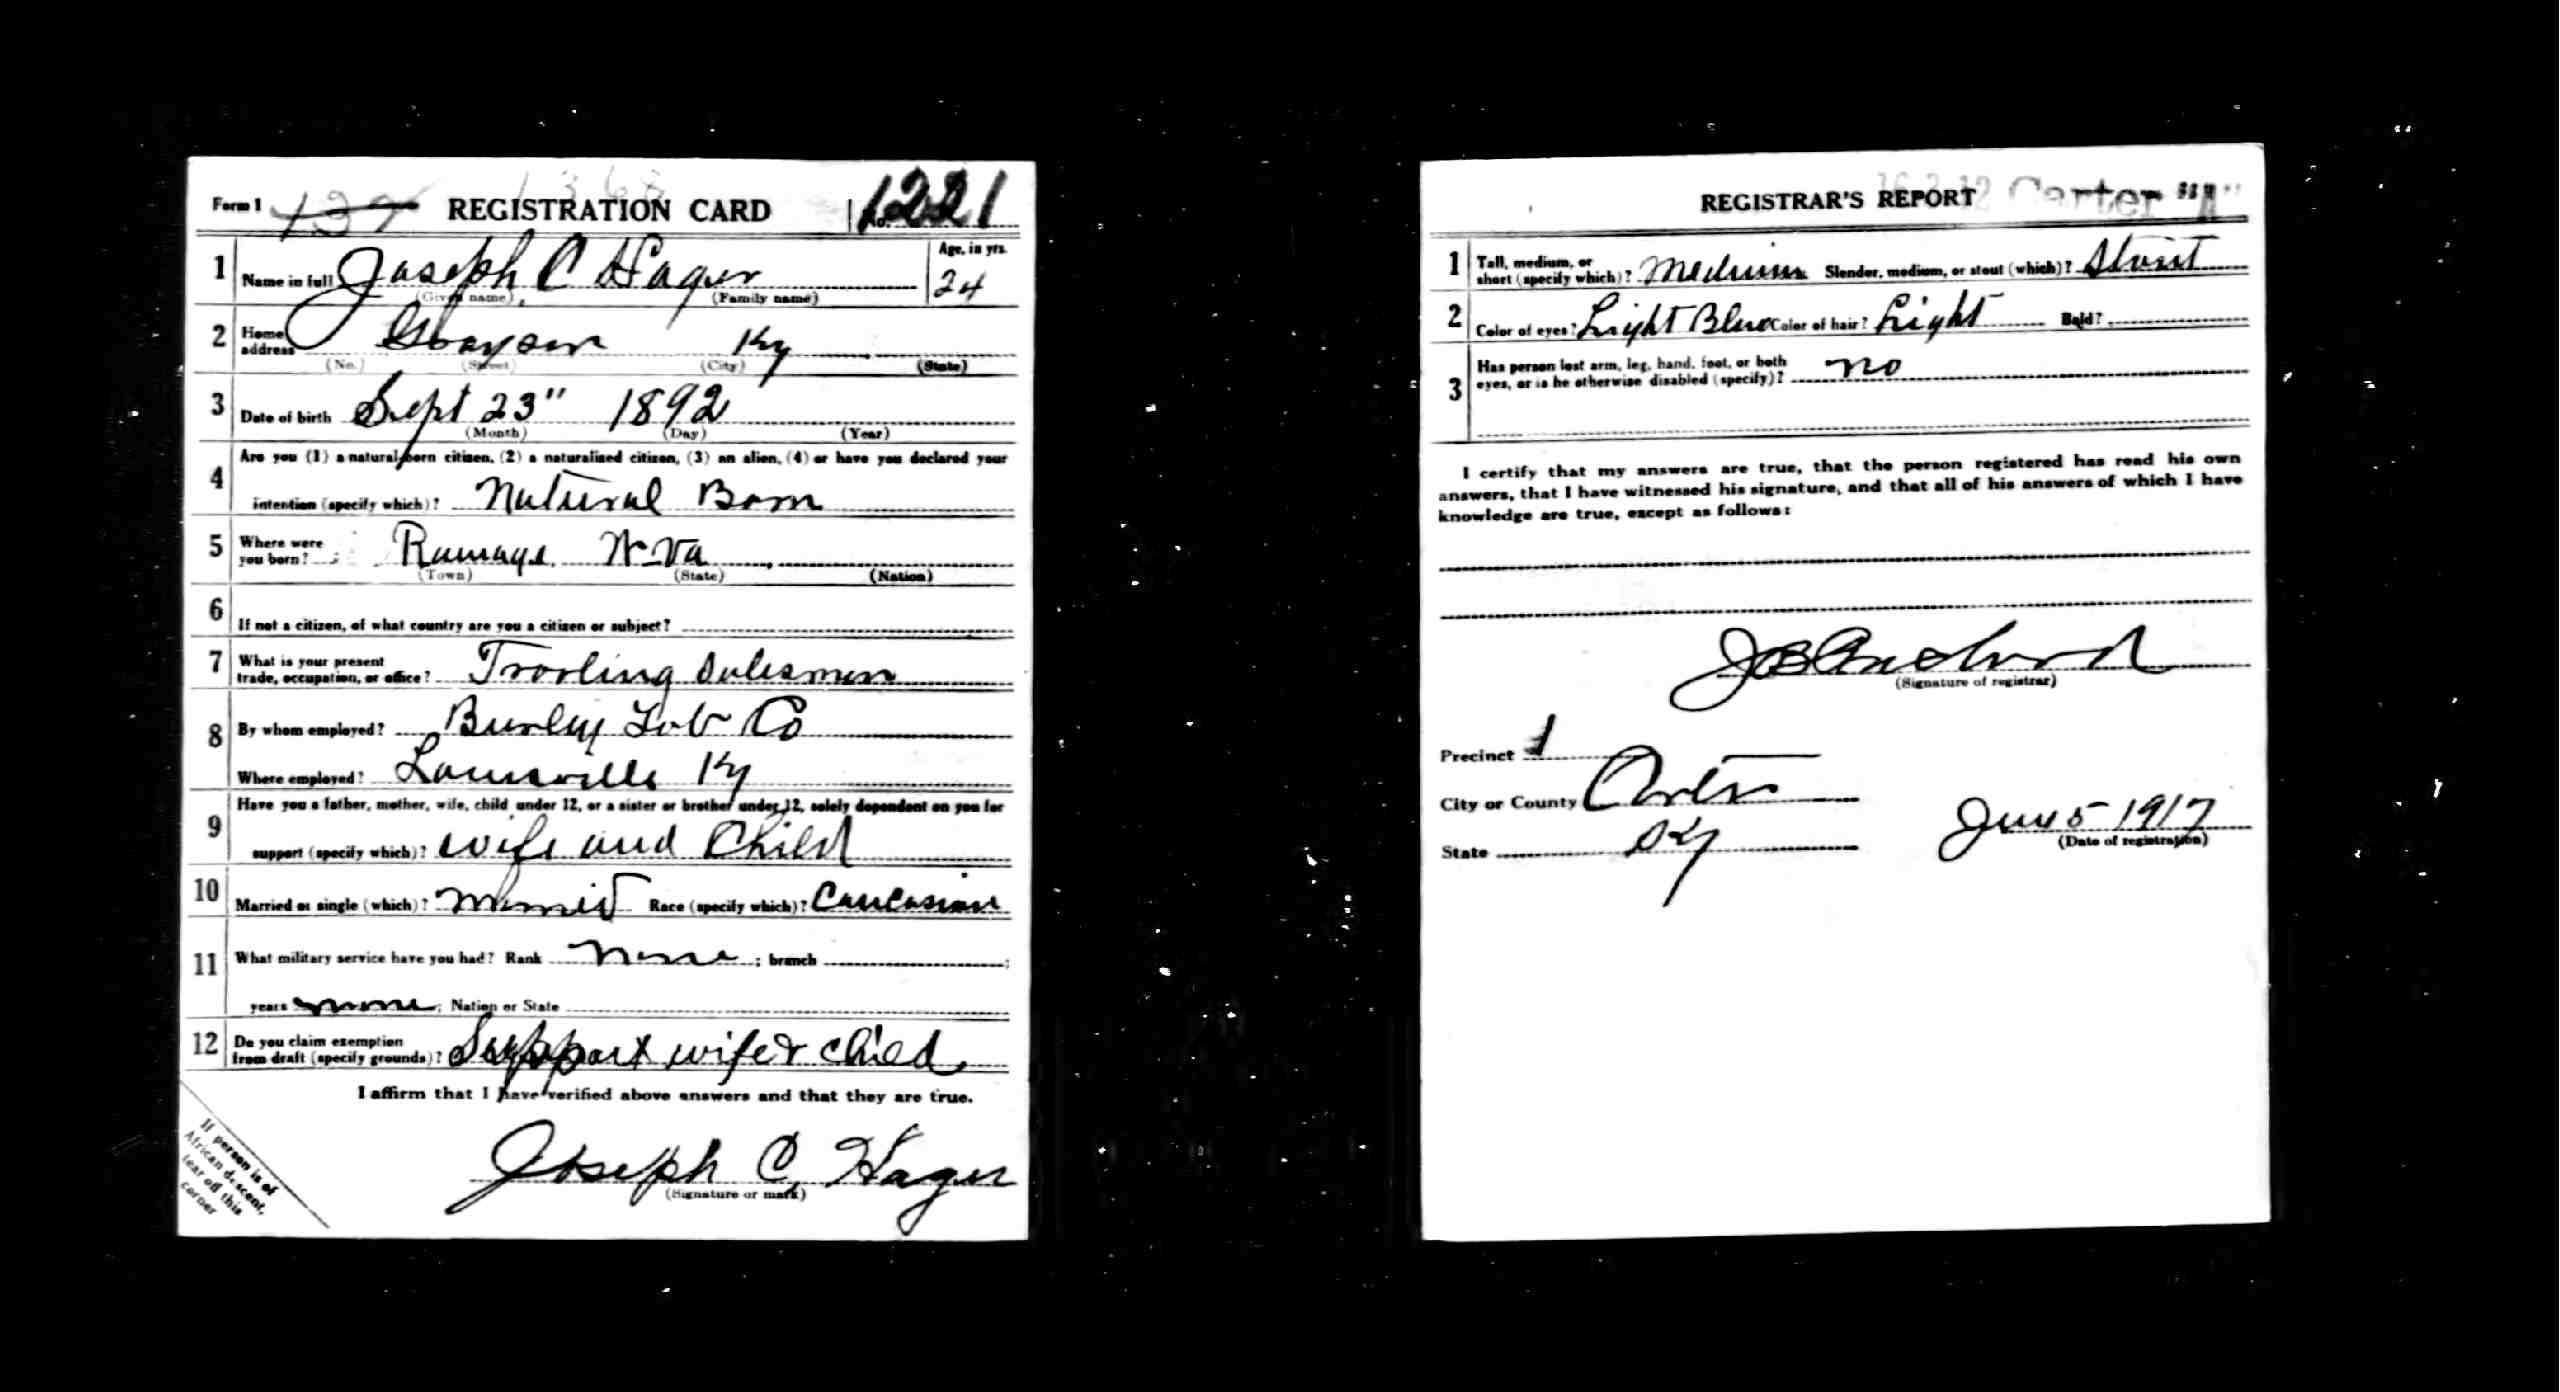 Form 1 137 REGISTRATION CARD No. 1221
1 Name in full Joseph C Hager Age, in yrs. 24
(Given name) (Family name)
2 Home address Grayson Ky
(No.) (Street) (City) (State)
3 Date of birth Sept 23" 1892
(Month) (Day) (Year)
4 Are you (1) a natural-born citizen, (2) a naturalized citizen, (3) an alien, (4) or have you declared your
intention (specify which)? Natural Born
5 Where were you born? Ramage W-Va
(Town) (State) (Nation)
6 If not a citizen, of what country are you a citizen or subject?
7 What is your present trade, occupation, or office? Travling Salesman
8 By whom employed? Burley Tob Co
Where employed? Louisville Ky
9 Have you a father, mother, wife, child under 12, or a sister or brother under 12, solely dependent on you for
support (specify which)? wife and Child
10 Married or single (which)? Married Race (specify which)? Caucasian
11 What military service have you had? Rank None ; branch ;
years none ; Nation or State
12 Do you claim exemption from draft (specify grounds)? Support wife & child
I affirm that I have verified above answers and that they are true.
Joseph C, Hager
(Signature or mark)
If person is of
African descent,
tear off this
corner
REGISTRAR'S REPORT 16-2-12 Carter "A"
1 Tall, medium, or short (specify which)? Medium Slender, medium, or stout (which)? Stout
2 Color of eyes? Light Blue Color of hair? Light Bald?
3 Has person lost arm, leg, hand, foot, or both
eyes, or is he otherwise disabled (specify)? no
I certify that my answers are true, that the person registered has read his own
answers, that I have witnessed his signature, and that all of his answers of which I have
knowledge are true, except as follows:
(Signature of registrar)
Precinct 1
City or County Carter
State Ky
June 5 1917
(Date of registration)